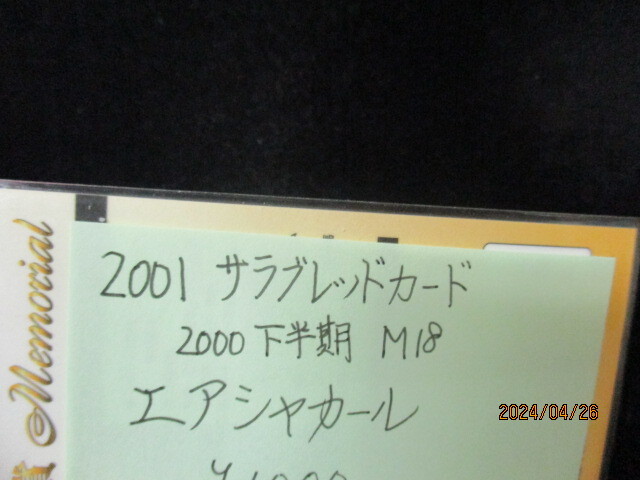 2001 サラブレッドカード
2000 下半期 M18
エアシャカール
Memorial
2024/04/26